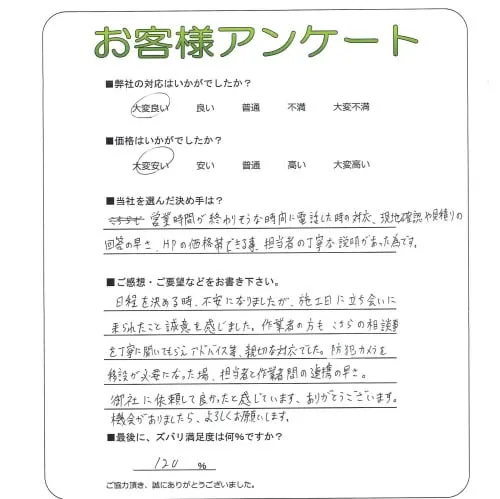 お客様アンケート
■弊社の対応はいかがでしたか？
大変良い 良い 普通 不満 大変不満
■価格はいかがでしたか？
大変安い 安い 普通 高い 大変高い
■当社を選んだ決め手は？
営業時間が終わりそうな時間に電話した時の対応、現地確認や見積りの
回答の早さ、HPの価格帯できる事、担当者の丁寧な説明があった為です。
■ご感想・ご要望などをお書き下さい。
日程を決める時、不安になりましたが、施工日に立ち会いに
来られたこと誠意を感じました。作業者の方も こちらの相談事
を丁寧に聞いてもらえアドバイス等、親切な対応でした。防犯カメラを
移設が必要になった場、担当者と作業者間の連携の早さ。
御社に依頼して良かったと感じています、ありがとうございます。
機会がありましたら、よろしくお願いします。
■最後に、ズバリ満足度は何％ですか？
120 ％
ご協力頂き、誠にありがとうございました。